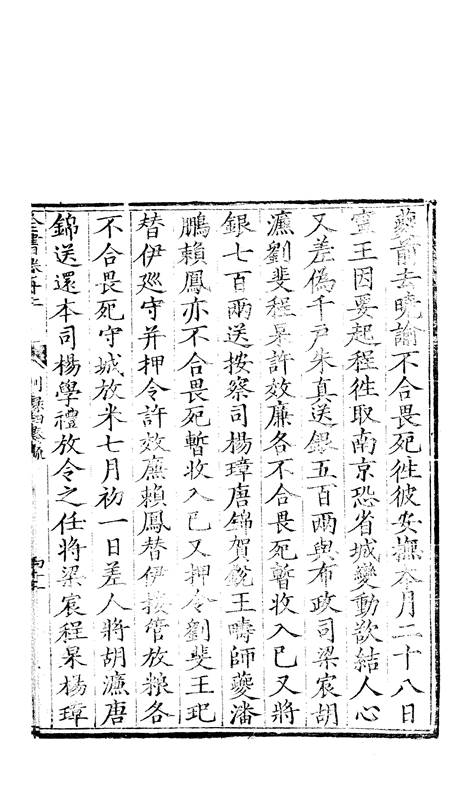 夔前去曉諭不合畏死徃彼安撫本月二十八日
寧王因要起程徃取南京恐省城變動欲結人心
又差偽千戶朱真送銀五百兩與布政司梁宸胡
濂劉斐程杲許效廉各不合畏死暫收入己又將
銀七百兩送按察司楊璋唐錦賀銳王疇師夔潘
鵬賴鳳亦不合畏死暫收入己又押令劉斐王玘
替伊廵守并押令許效廉賴鳳替伊接管放糧各
不合畏死守城放米七月初一日差人將胡濂唐
錦送還本司楊學禮放令之任將梁宸程杲楊璋